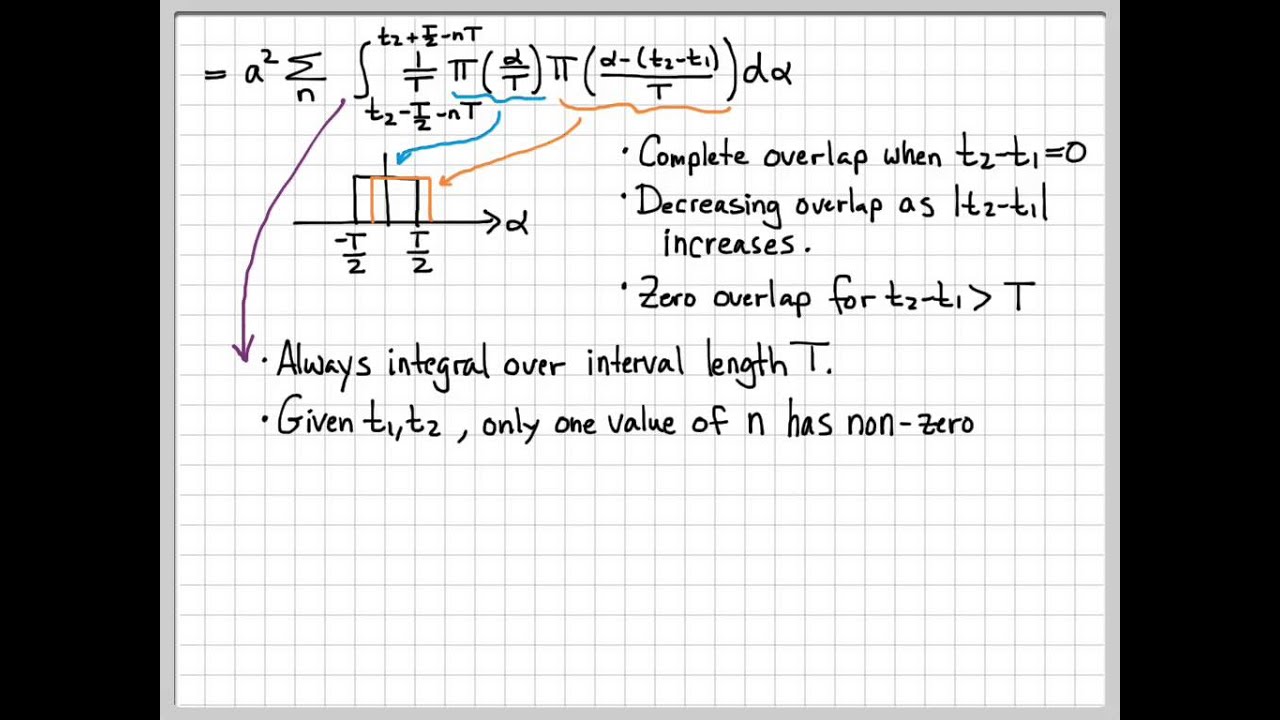 = a² Σ_n ∫_{t₂-T/2-nT}^{t₂+T/2-nT} 1/T Π(α/T) Π((α-(t₂-t₁))/T) dα
· Complete overlap when t₂-t₁=0
· Decreasing overlap as |t₂-t₁|
increases.
· Zero overlap for t₂-t₁ > T
α
-T/2 T/2
· Always integral over interval length T.
· Given t₁,t₂ , only one value of n has non-zero